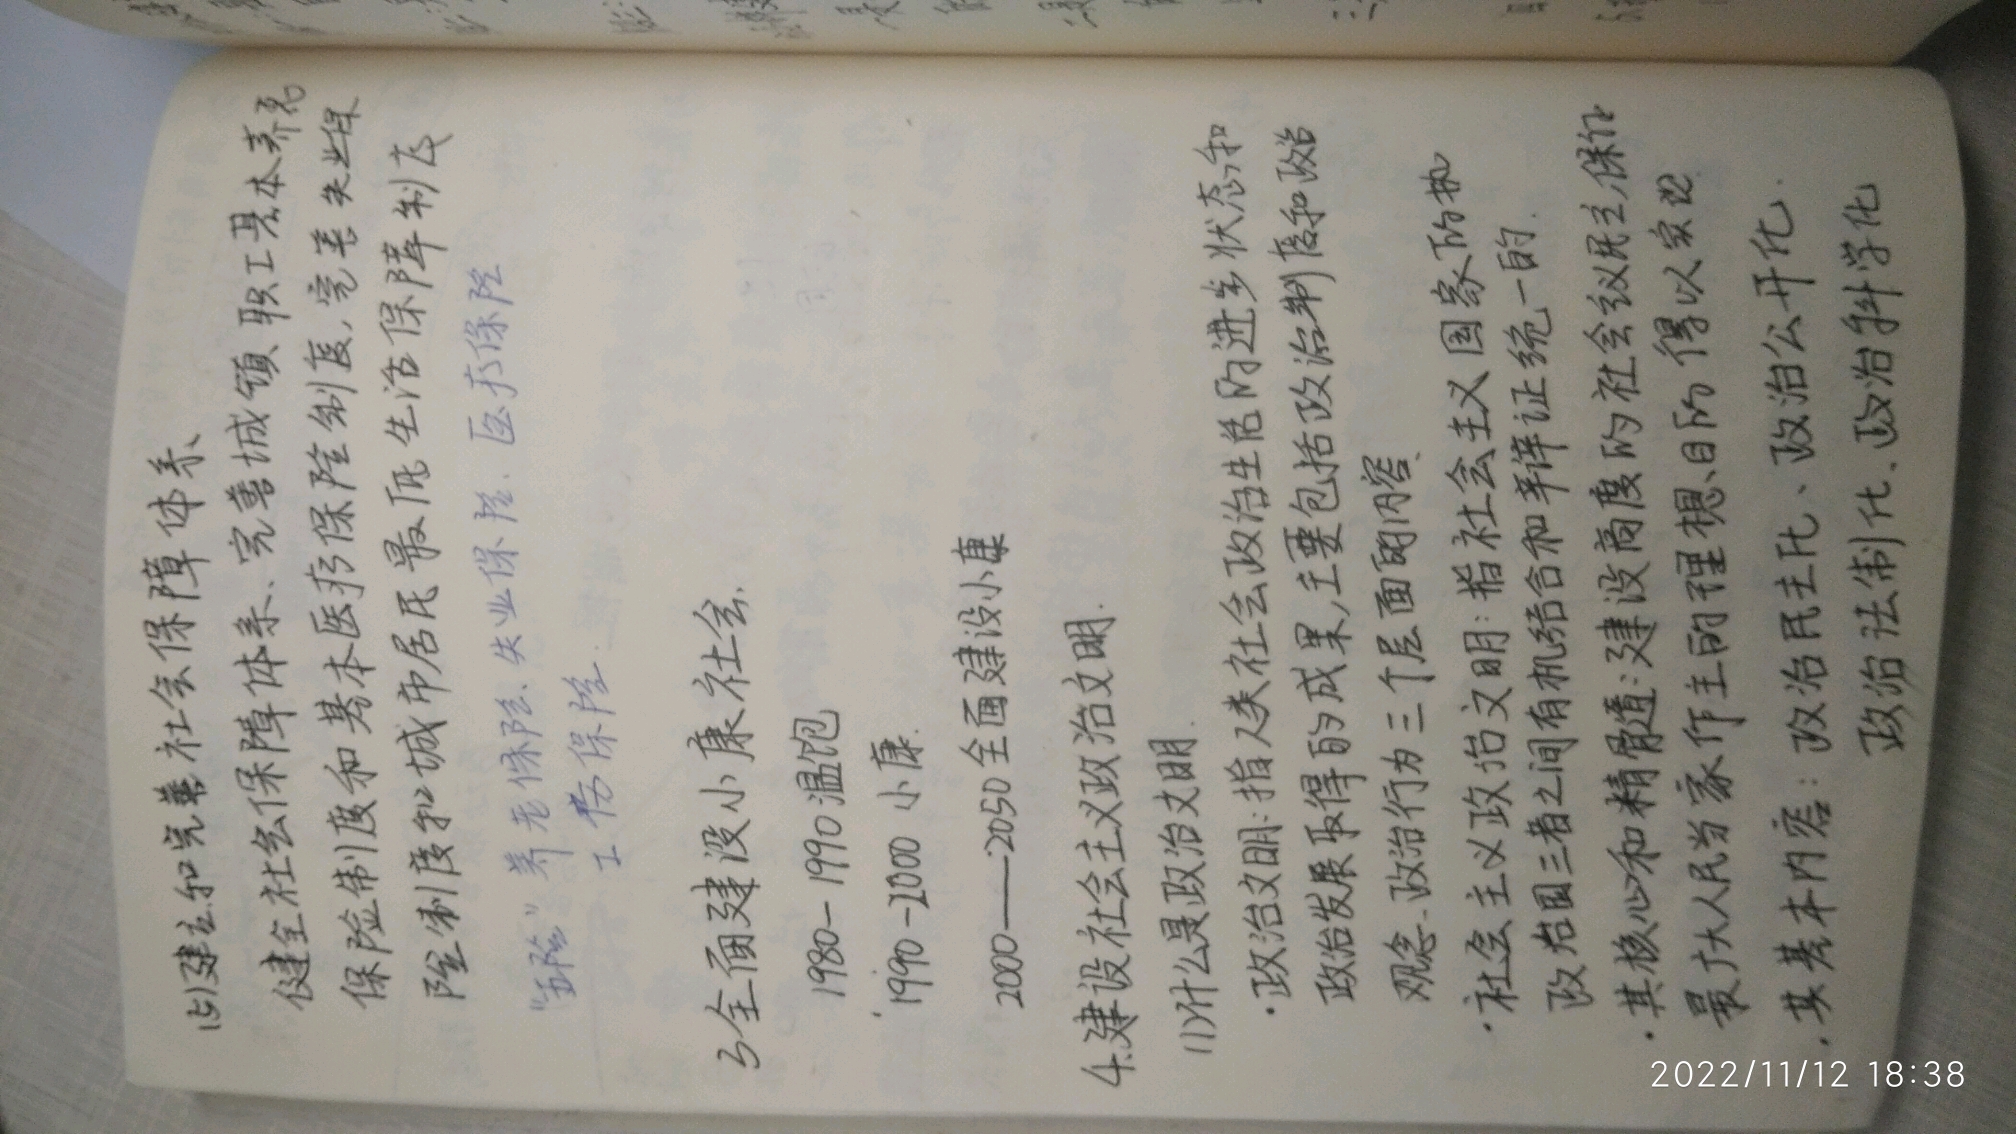 (5)建立和完善社会保障体系、
健全社会保障体系、完善城镇职工基本养老
保险制度和基本医疗保险制度,完善失业保
险制度和城市居民最低生活保障制度
"五险"养老保险、失业保险、医疗保险
工伤保险.
3全面建设小康社会.
1980-1990温饱
1990-2000 小康.
2000——2050全面建设小康
4.建设社会主义政治文明.
(1)什么是政治文明.
·政治文明:指人类社会政治生活的进步状态和
政治发展取得的成果,主要包括政治制度和政治
观念、政治行为三个层面的内容、
·社会主义政治文明:指社会主义国家的
政治图三者之间有机结合和辛详证统一的.
·其核心和精髓:建设高度的社会议民主,保证
最广大人民当家作主的理想、目的得以实现
·其基本内容:政治民主化、政治公开化.
政治法制化、政治科学化
2022/11/12 18:38